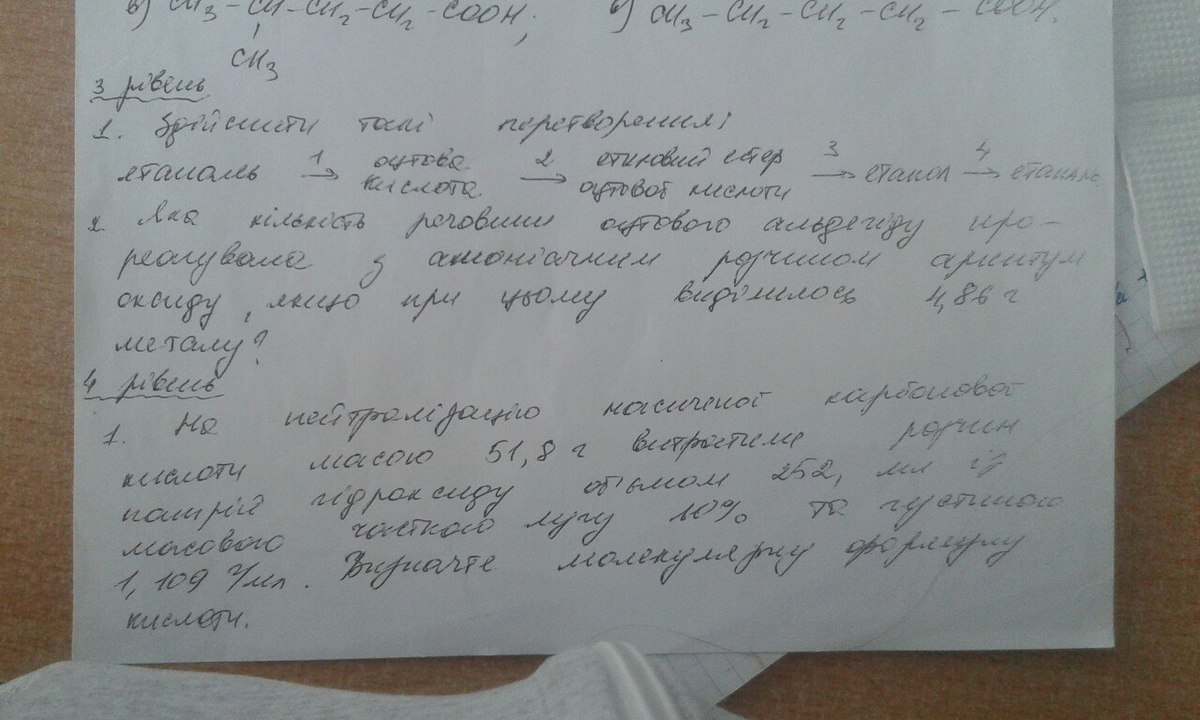 в) CH₃ – CH – CH₂ – CH₂ – COOH; в) CH₃ – CH₂ – CH₂ – CH₂ – COOH.
CH₃
3 рівень
1. Здійснити такі перетворення:
етаналь 1→ оцтова кислота 2→ етиловий естер оцтової кислоти 3→ етанол 4→ етаналь
2 Яка кількість речовини оцтового альдегіду про-
реагувала з амоніачним розчином аргентум
оксиду, якщо при цьому виділилось 4,86 г
металу?
4 рівень
1. На нейтралізацію насиченої карбонової
кислоти масою 51,8 г витратили розчин
натрій гідроксиду об'ємом 252, мл із
масового часткою лугу 10% та густиною
1,109 г/мл. Визначте молекулярну формулу
кислоти.